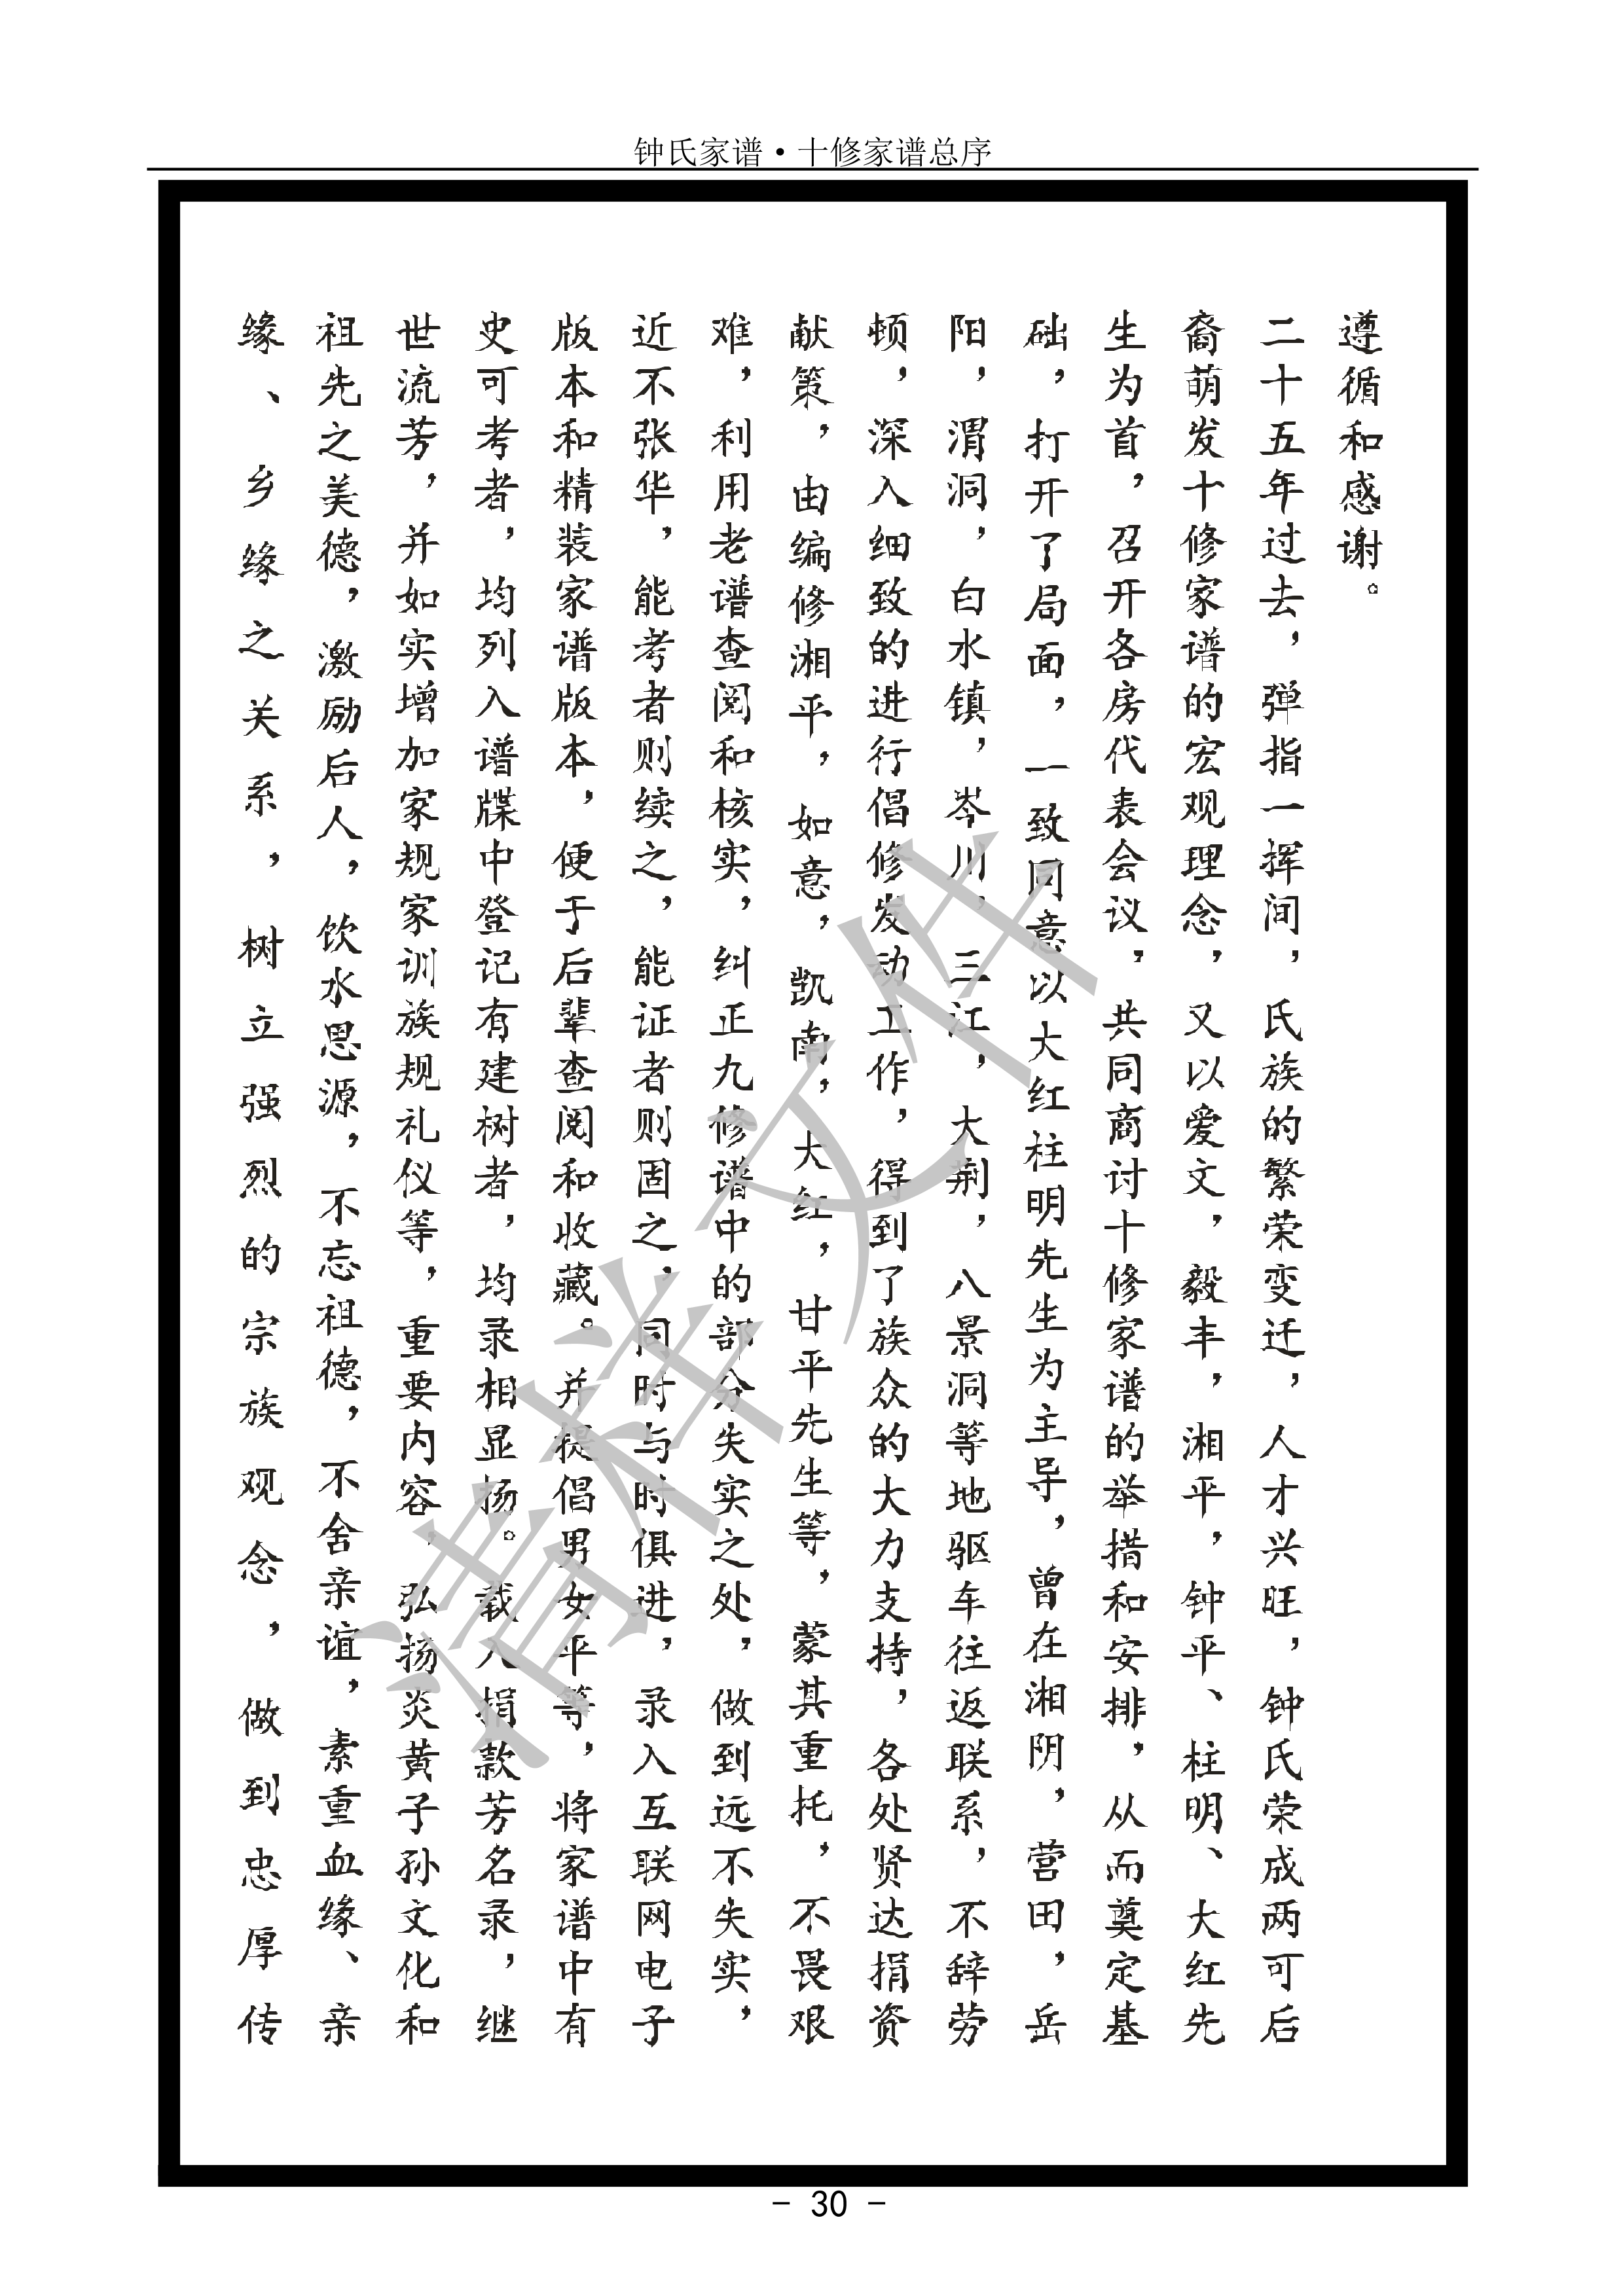 钟氏家谱·十修家谱总序
遵循和感谢。
二十五年过去，弹指一挥间，氏族的繁荣变迁，人才兴旺，钟氏荣成两可后
裔萌发十修家谱的宏观理念，又以爱文，毅丰，湘平，钟平、柱明、大红先
生为首，召开各房代表会议，共同商讨十修家谱的举措和安排，从而奠定基
础，打开了局面，一致同意以大红柱明先生为主导，曾在湘阴，营田，岳
阳，渭洞，白水镇，岑川，三江，大荆，八景洞等地驱车往返联系，不辞劳
顿，深入细致的进行倡修发动工作，得到了族众的大力支持，各处贤达捐资
献策，由编修湘平，如意，凯南，大红，甘平先生等，蒙其重托，不畏艰
难，利用老谱查阅和核实，纠正九修谱中的部分失实之处，做到远不失实，
近不张华，能考者则续之，能证者则固之，同时与时俱进，录入互联网电子
版本和精装家谱版本，便于后辈查阅和收藏。并提倡男女平等，将家谱中有
史可考者，均列入谱牒中登记有建树者，均录相显扬。载入捐款芳名录，继
世流芳，并如实增加家规家训族规礼仪等，重要内容，弘扬炎黄子孙文化和
祖先之美德，激励后人，饮水思源，不忘祖德，不舍亲谊，素重血缘、亲
缘、乡缘之关系，树立强烈的宗族观念，做到忠厚传
清样文件
- 30 -